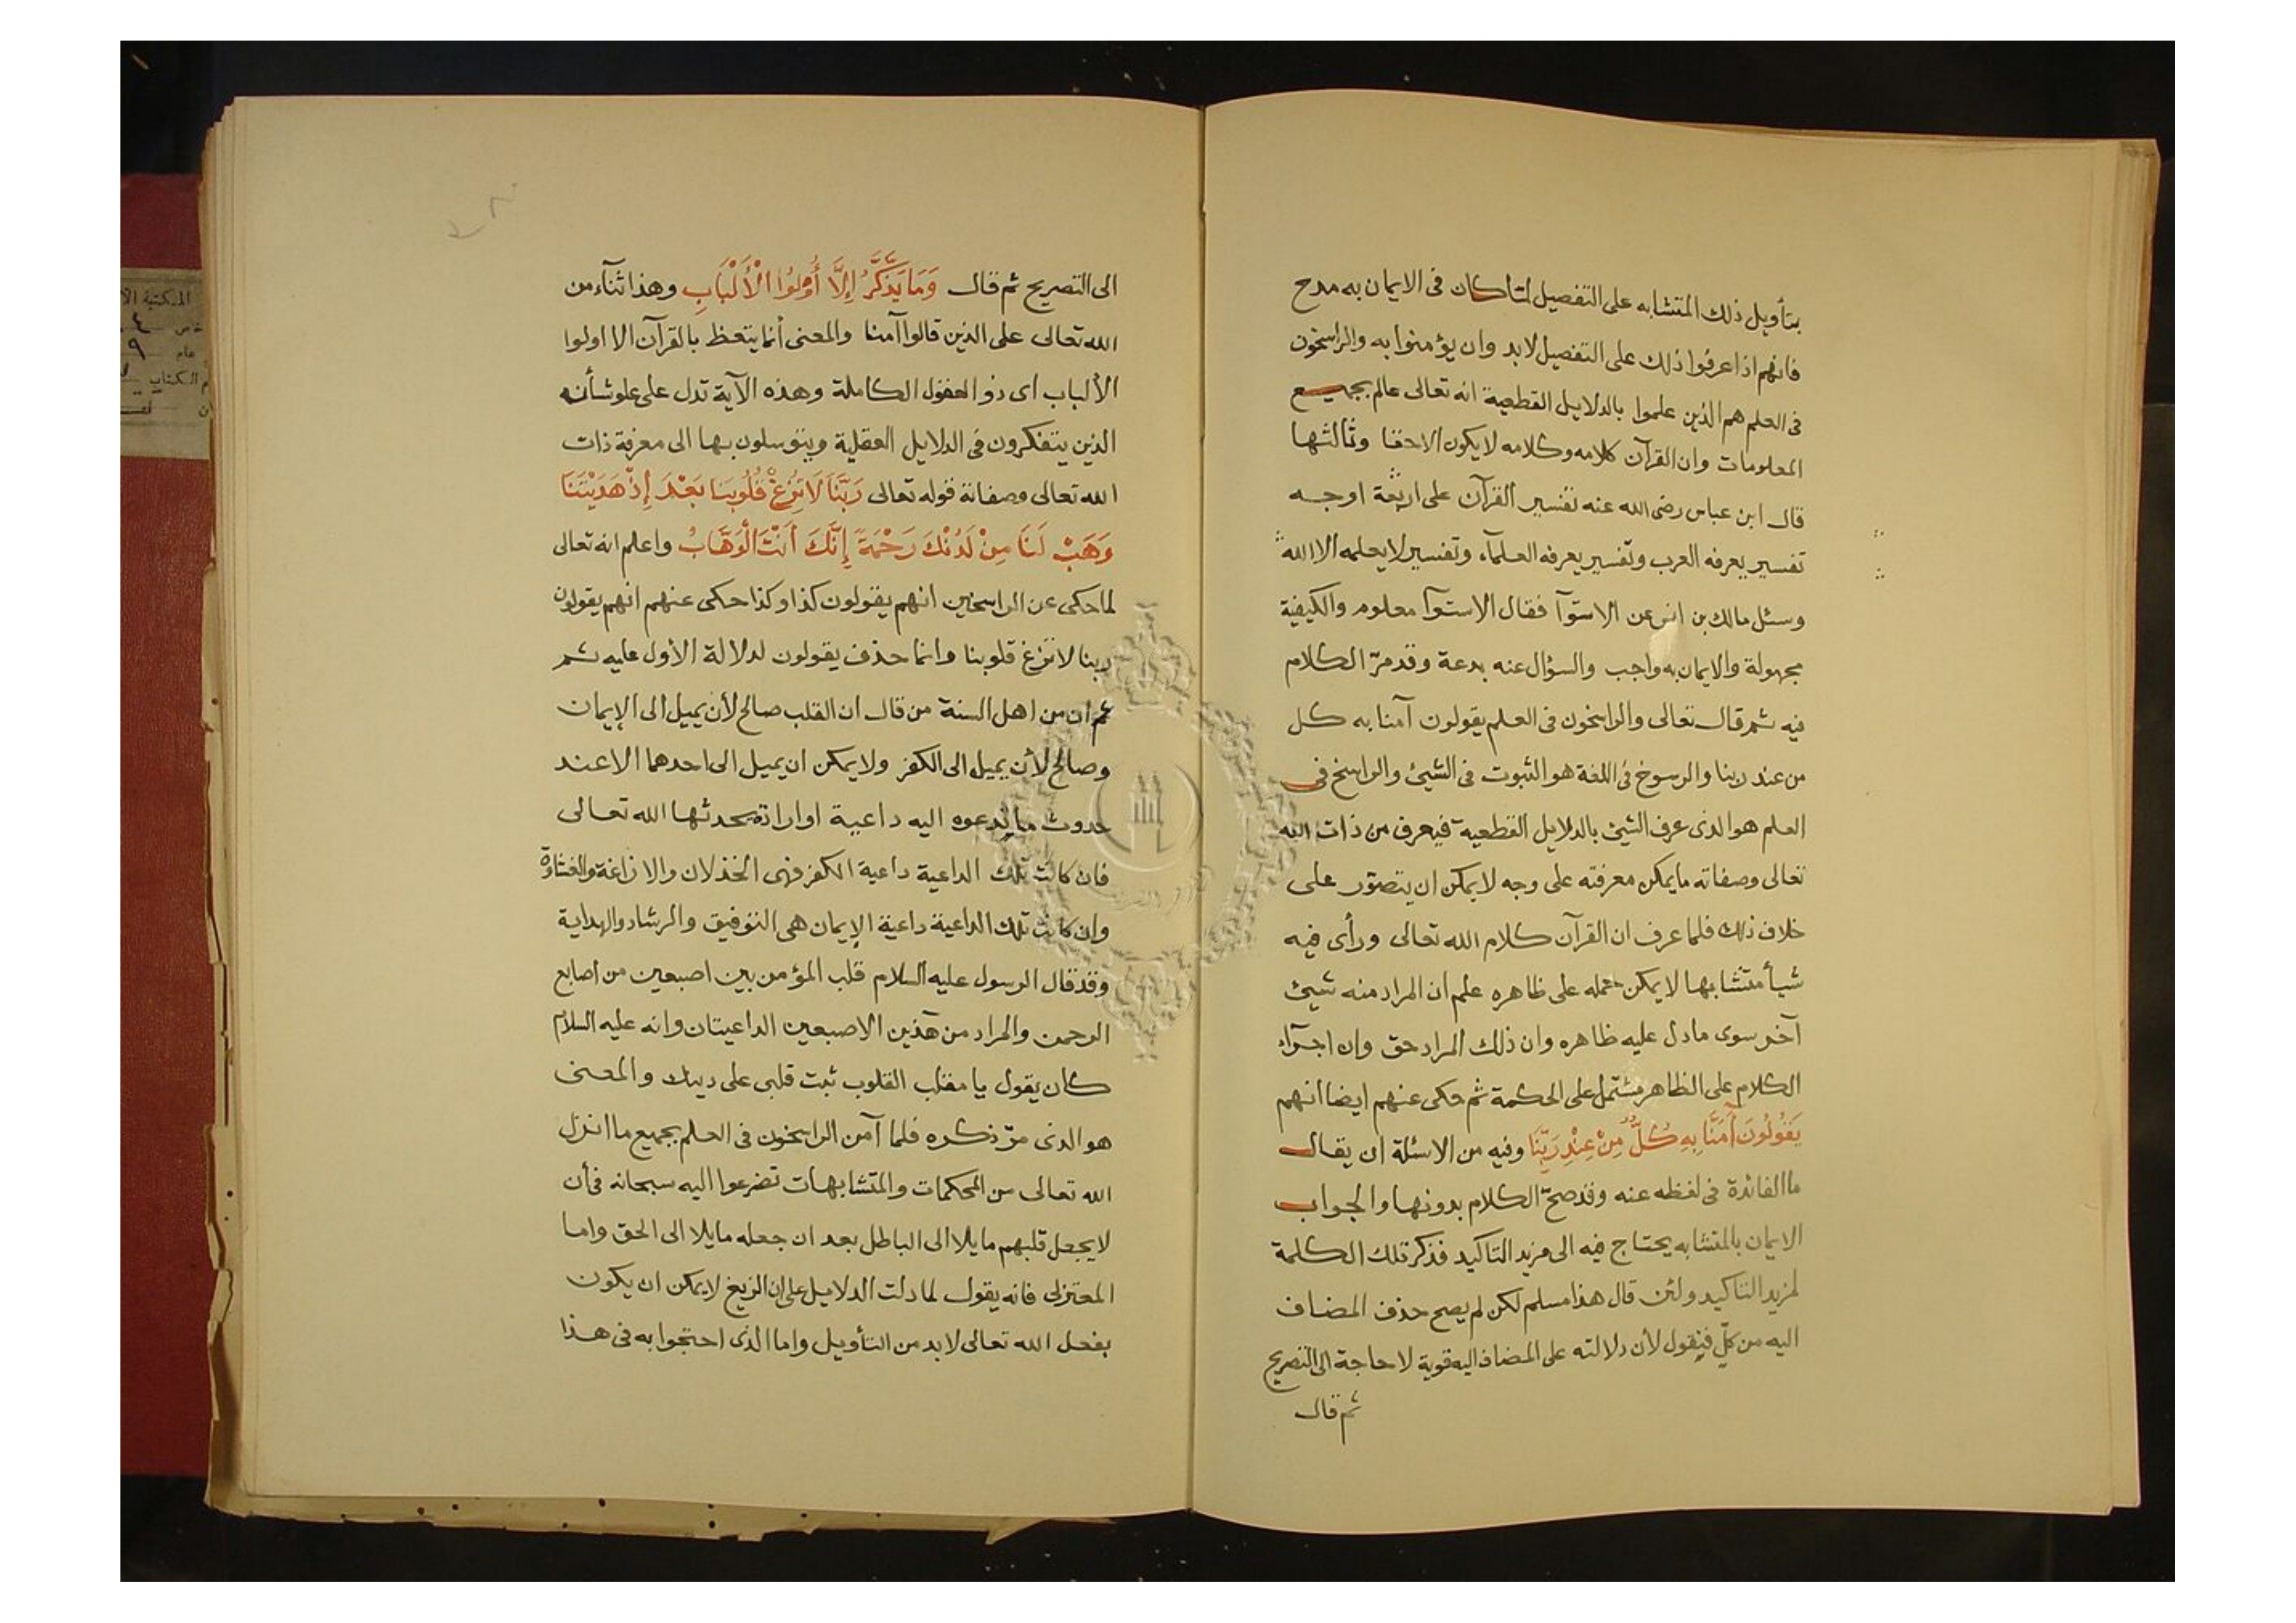 بتأويل ذلك المتشابه على التفصيل لما كان فى الايمان به مدح
فانهم اذا عرفوا ذلك على التفصيل لابد وان يؤمنوا به والراسخون
فى العلم هم الذين علموا بالدلايل القطعية انه تعالى عالم بجميع
المعلومات وان القرآن كلامه وكلامه لا يكون الا حقا وثالثها
قال ابن عباس رضى الله عنه تفسير القرآن على اربعة اوجه
تفسير يعرفه العرب وتفسير يعرفه العلمآء وتفسير لا يعلمه الا الله
وسئل مالك بن انس عن الاستوآ فقال الاستوآ معلوم والكيفية
مجهولة والايمان به واجب والسؤال عنه بدعة وقد مرّ الكلام
فيه ثم قال تعالى والراسخون فى العلم يقولون آمنا به كل
من عند ربنا والرسوخ فى اللغة هو الثبوت فى الشيئ والراسخ فى
العلم هو الذى عرف الشيئ بالدلايل القطعية فيعرف من ذات الله
تعالى وصفاته ما يمكن معرفته على وجه لا يمكن ان يتصوّر على
خلاف ذلك فلما عرف ان القرآن كلام الله تعالى ورأى فيه
شيأ متشابها لا يمكن حمله على ظاهره علم ان المراد منه شيئ
آخر سوى ما دل عليه ظاهره وان ذلك المراد حق وان اجرآء
الكلام على الظاهر مشتمل على الحكمة ثم حكى عنهم ايضا انهم
يَقُولُونَ آمَنَّا بِهِ كُلٌّ مِنْ عِنْدِ رَبِّنَا وفيه من الاسئلة ان يقال
ما الفائدة فى لفظه عنه وقد صحّ الكلام بدونها والجواب
الايمان بالمتشابه يحتاج فيه الى مزيد التاكيد فذكر تلك الكلمة
لمزيد التاكيد ولئن قال هذا مسلم لكن لم يصح حذف المضاف
اليه من كلّ فيقول لأن دلالته على المضاف اليه قوية لا حاجة الى التصريح
ثم قال
الى التصريح ثم قال وَمَا يَذَّكَّرُ إِلَّا أُولُوا الْأَلْبَابِ وهذا ثنآء من
الله تعالى على الذين قالوا آمنا والمعنى أنما يتعظ بالقرآن الا اولوا
الألباب اى ذو العقول الكاملة وهذه الآية تدل على علو شأن
الذين يتفكرون فى الدلايل العقلية ويتوسلون بها الى معرفة ذات
الله تعالى وصفاته قوله تعالى رَبَّنَا لَا تُزِغْ قُلُوبَنَا بَعْدَ إِذْ هَدَيْتَنَا
وَهَبْ لَنَا مِنْ لَدُنْكَ رَحْمَةً إِنَّكَ أَنْتَ الْوَهَّابُ واعلم انه تعالى
لما حكى عن الراسخين انهم يقولون كذا وكذا حكى عنهم انهم يقولون
ربنا لا تزغ قلوبنا وانما حذف يقولون لدلالة الأول عليه ثم
ثم ان من اهل السنة من قال ان القلب صالح لأن يميل الى الإيمان
وصالح لأن يميل الى الكفر ولا يمكن ان يميل الى احدهما الا عند
حدوث ما يدعوه اليه داعية او ارادة يحدثها الله تعالى
فان كانت تلك الداعية داعية الكفر فهى الخذلان والازاغة والغشاوة
وان كانت تلك الداعية داعية الإيمان هى التوفيق والرشاد والهداية
وقد قال الرسول عليه السلام قلب المؤمن بين اصبعين من اصابع
الرحمن والمراد من هذين الاصبعين الداعيتان وانه عليه السلام
كان يقول يا مقلب القلوب ثبت قلبى على دينك والمعنى
هو الذى مرّ ذكره فلما آمن الراسخون فى العلم بجميع ما انزل
الله تعالى من المحكمات والمتشابهات تضرعوا اليه سبحانه فى أن
لا يجعل قلبهم مايلا الى الباطل بعد ان جعله مايلا الى الحق واما
المعتزلى فانه يقول لما دلت الدلايل على ان الزيغ لا يمكن ان يكون
بفعل الله تعالى لا بد من التأويل واما الذى احتجوا به فى هذا